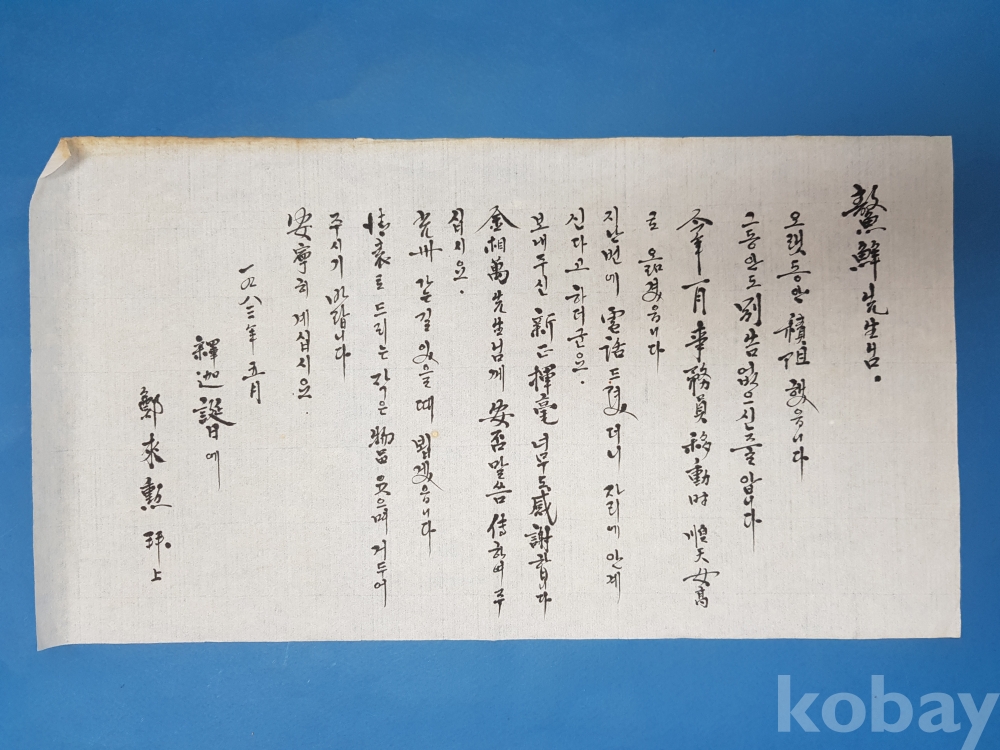 鰲鮮先生님.
오랫동안 積阻했읍니다
그동안도 別苦 없으신줄 압니다
今年 一月 事務員 移動時 順天女高
로 옮겼읍니다
지난번에 電話드렸더니 자리에 안계
신다고 하더군요.
보내주신 新正揮毫 너무도 感謝합니다
金相萬先生님께 安否말씀 傳하여 주
십시요.
光州 가는길 있을때 뵙겠읍니다
情表로 드리는 작은 物品 웃으며 거두어
주시기 바랍니다
安寧히 계십시요.
一九八三年 五月
釋迦誕日에
鄭來勳 拜上
kobay